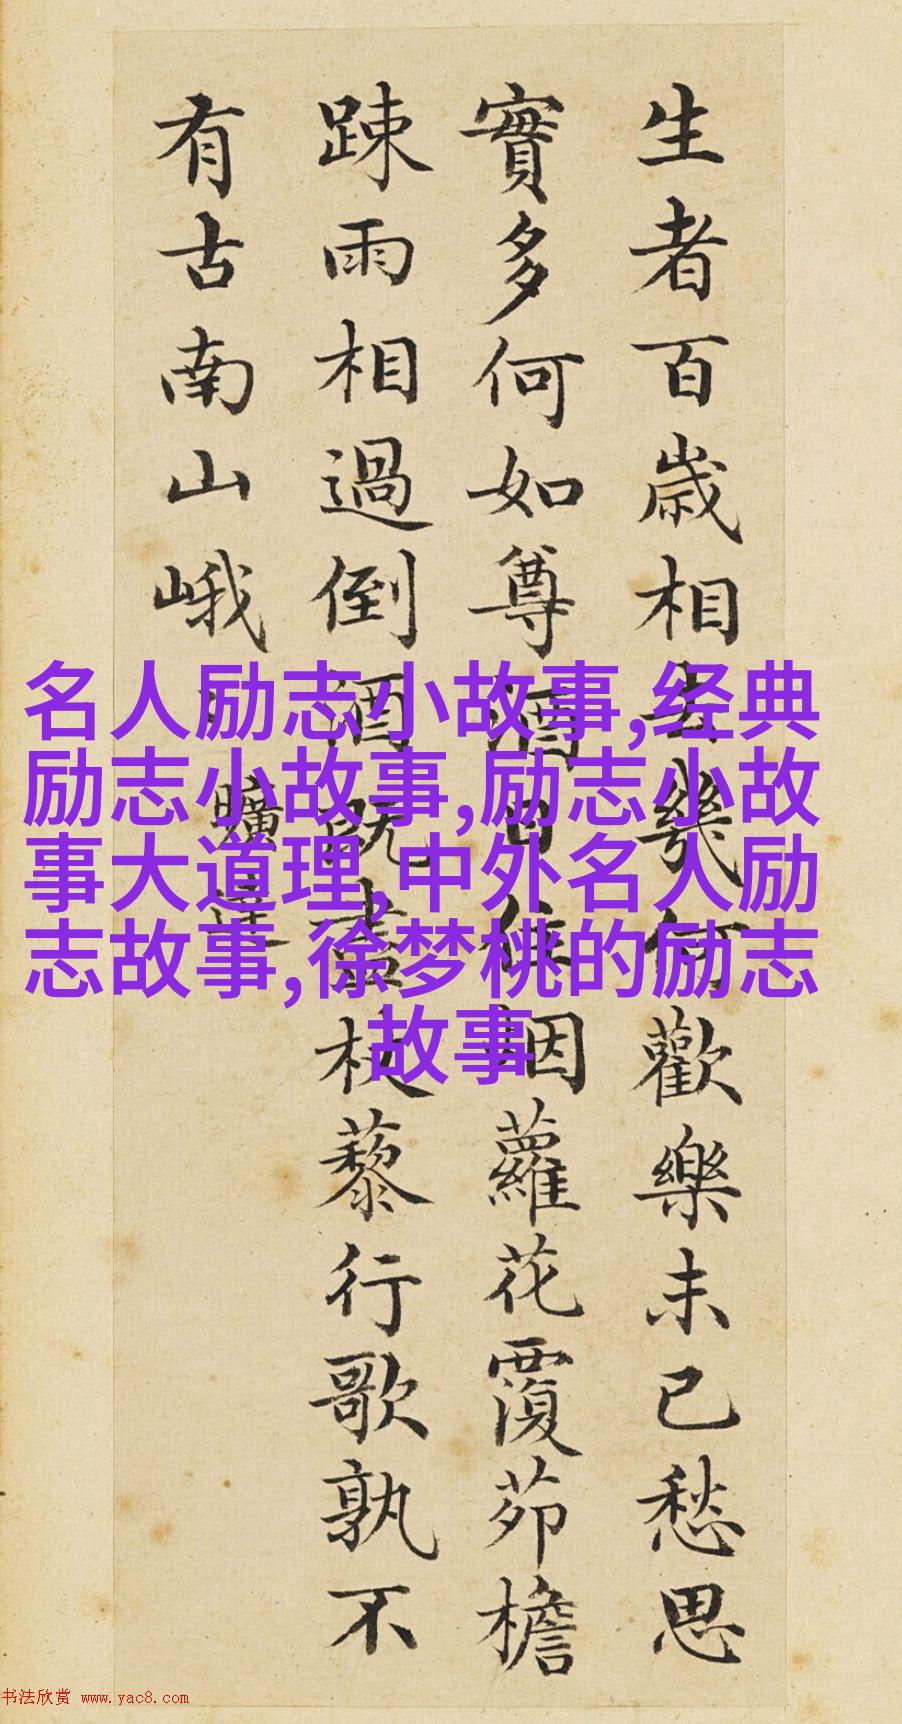 生者百歲相去幾何歡樂未已愁思
實多何如尊酒日往烟蘿花覆茆檐
踈雨相過倒酒既盡杖藜行歌孰不
有古南山峨
曠達
名人励志小故事,经典
励志小故事,励志小故
事大道理,中外名人励
志故事,徐梦桃的励志
故事
书法欣赏 www.yac8.com